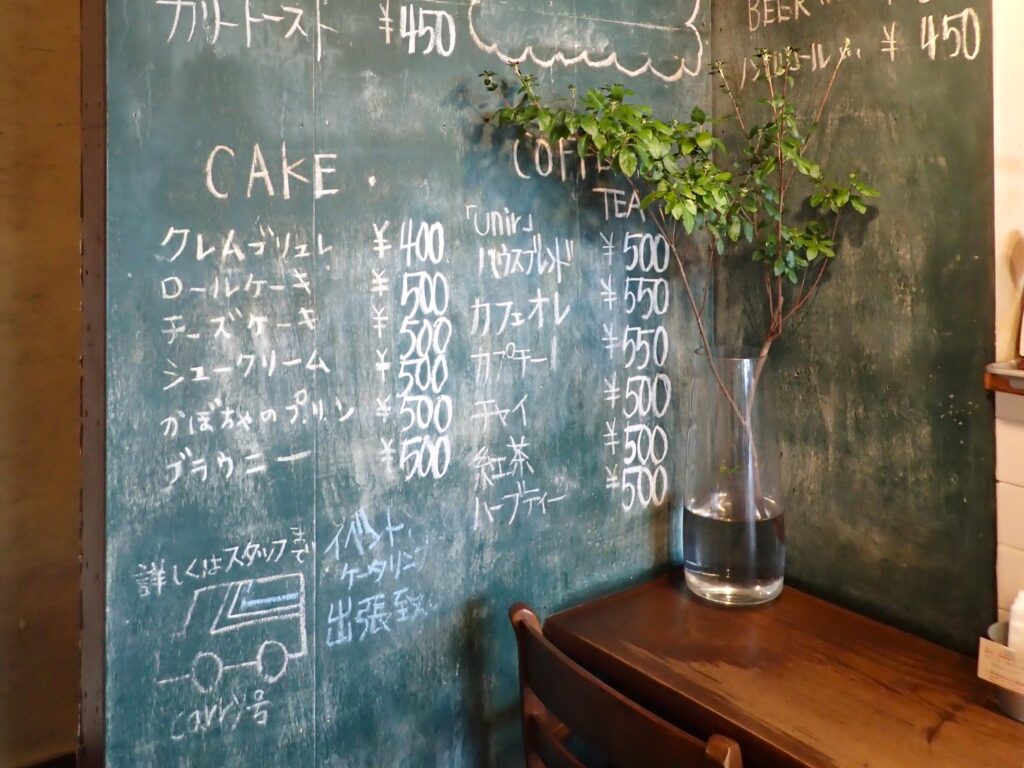 カリートースト ¥450
BEER
¥450
CAKE.
クレムブリュレ ¥400
ロールケーキ ¥500
チーズケーキ ¥500
シュークリーム ¥500
かぼちゃのプリン ¥500
ブラウニー ¥500
COFFE
TEA
「unir」
ハウスブレンド ¥500
カフェオレ ¥550
カプチーノ ¥550
チャイ ¥500
紅茶 ¥500
ハーブティー ¥500
詳しくはスタッフまで
carry号
イベント,
ケータリング
出張致